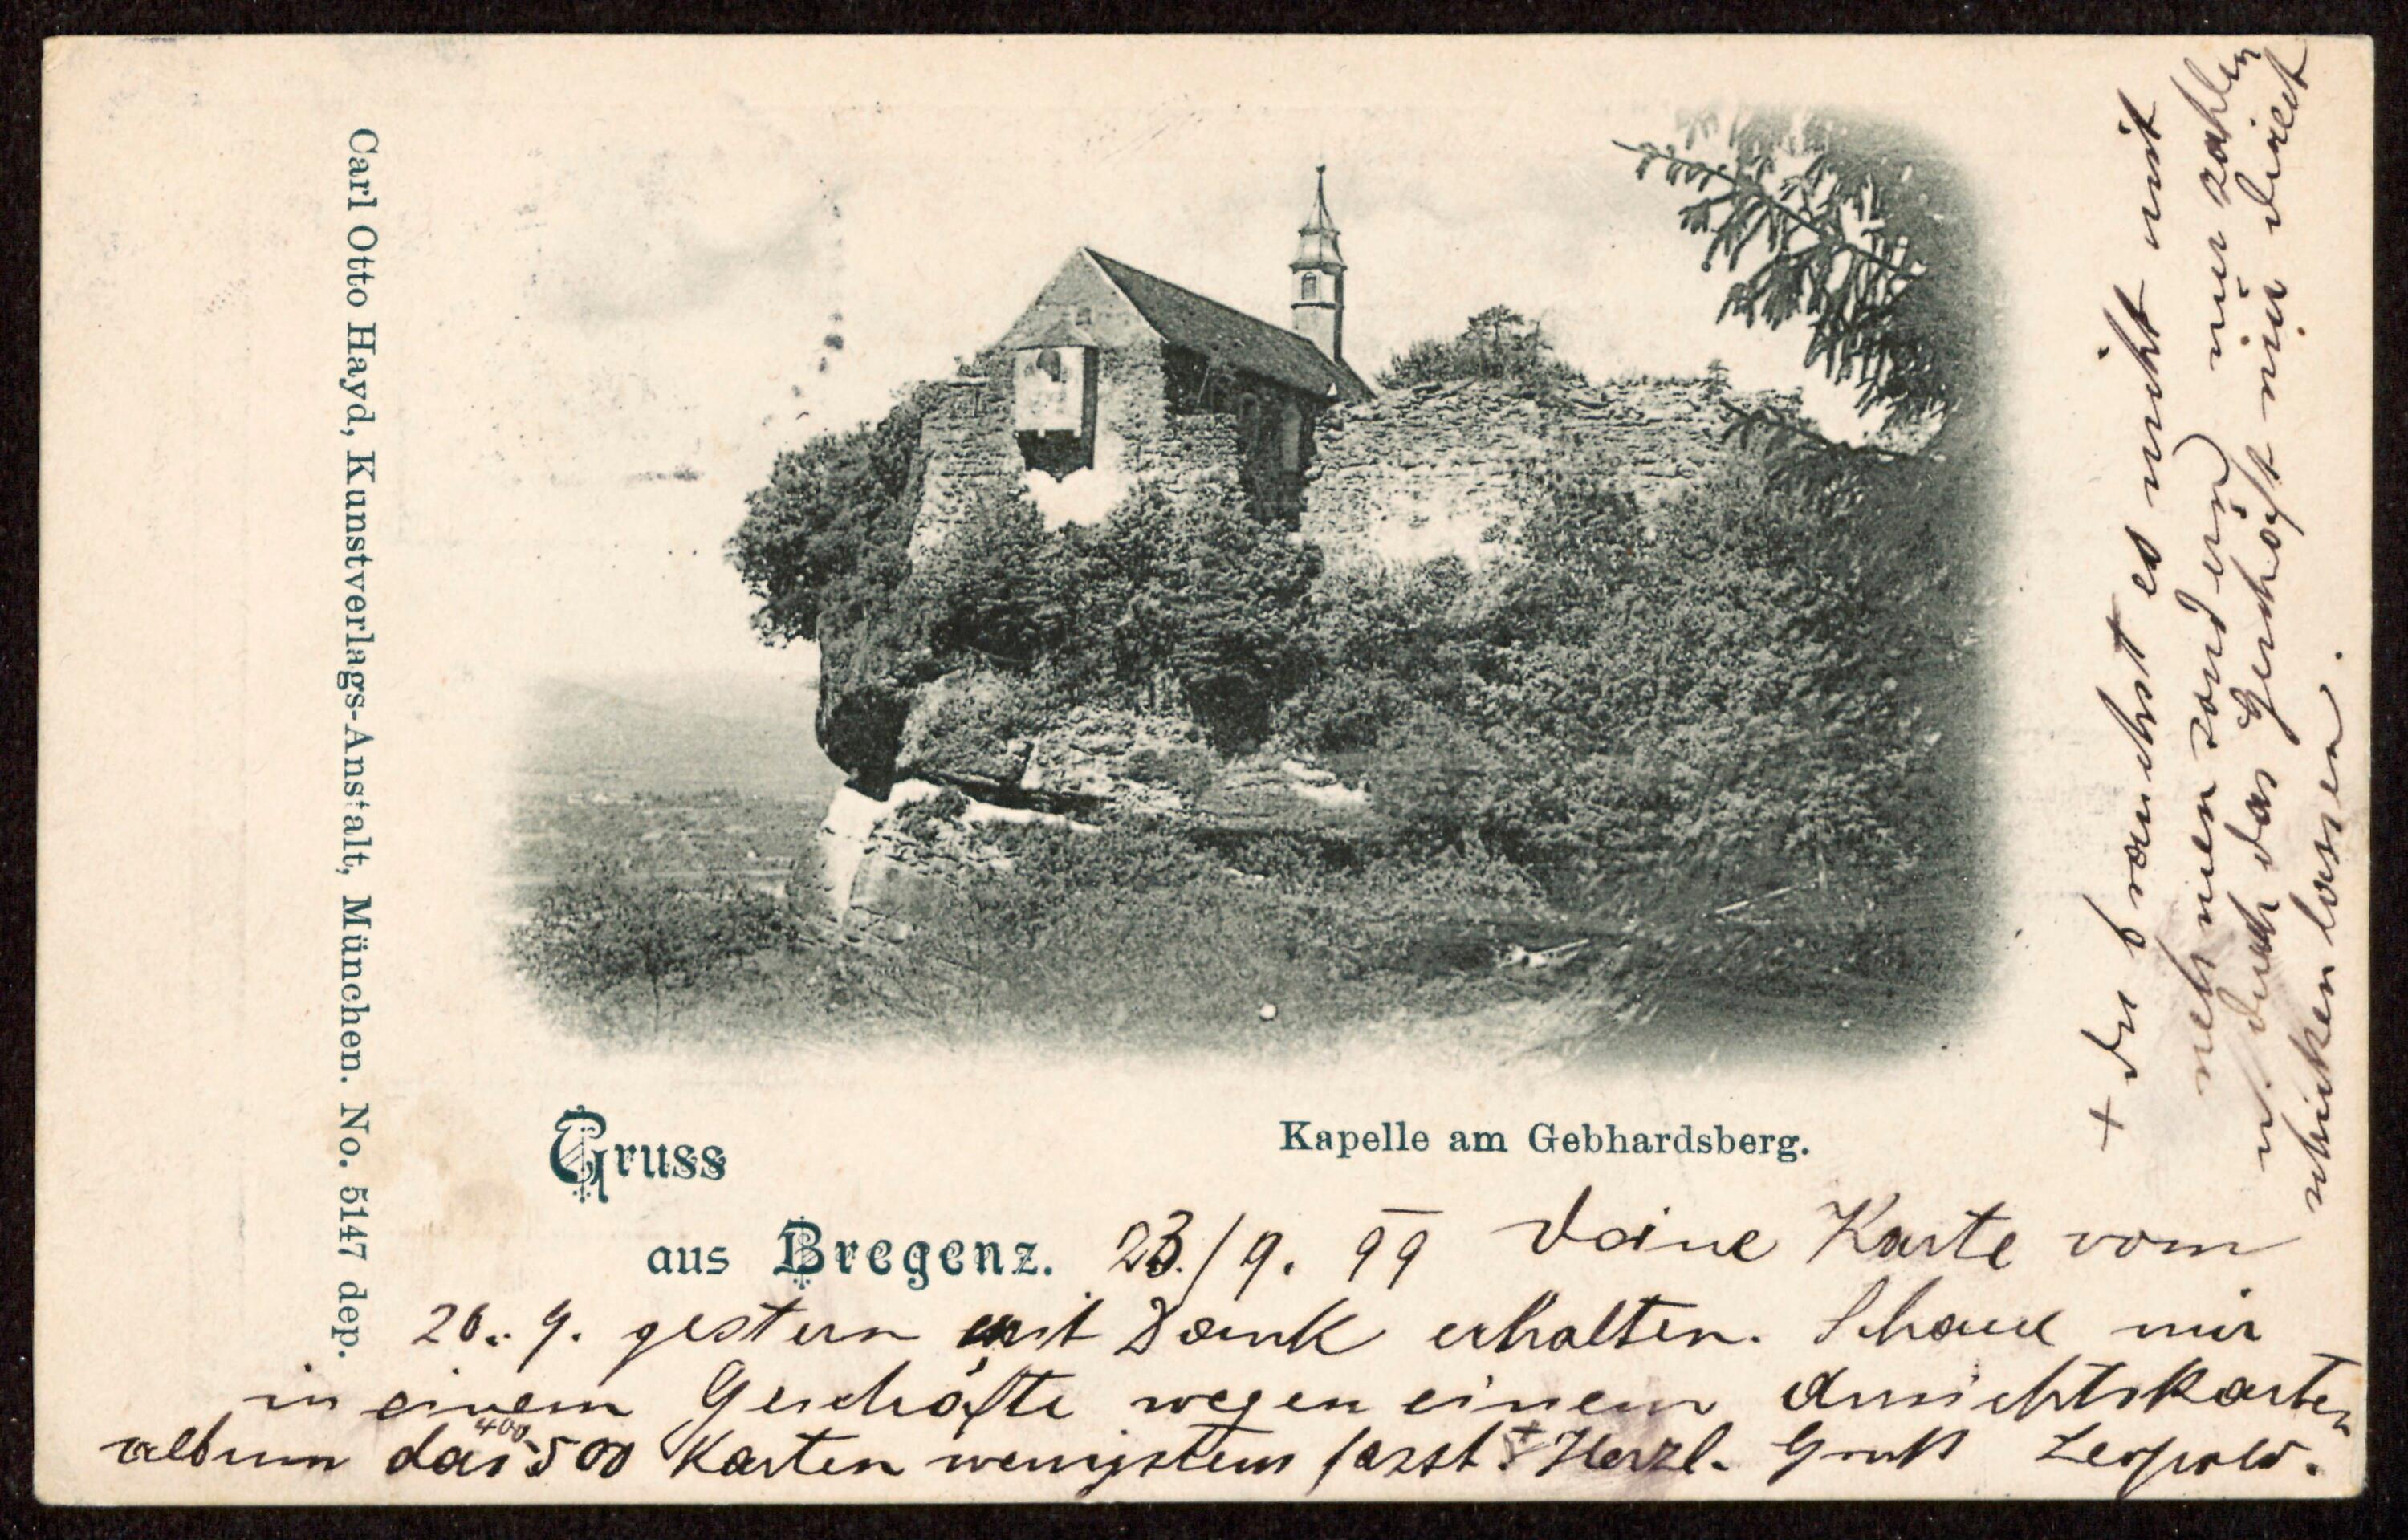 Carl Otto Hayd, Kunstverlags-Anstalt, München. No. 5147 dep.
Gruss
aus Bregenz.
Kapelle am Gebhardsberg.
23./9. 99 Deine Karte vom
20. 9. gestern mit Dank erhalten. Schaue mir
in einem Geschäfte wegen einem Ansichtskarten
album das 400-500 Karten wenigstens fasst. + Herzl. Gruß Leopold.
+ du brauchst es nicht mit
nehmen sondern nur zahlen
u. durch das Geschäft mir direct
schicken lassen.